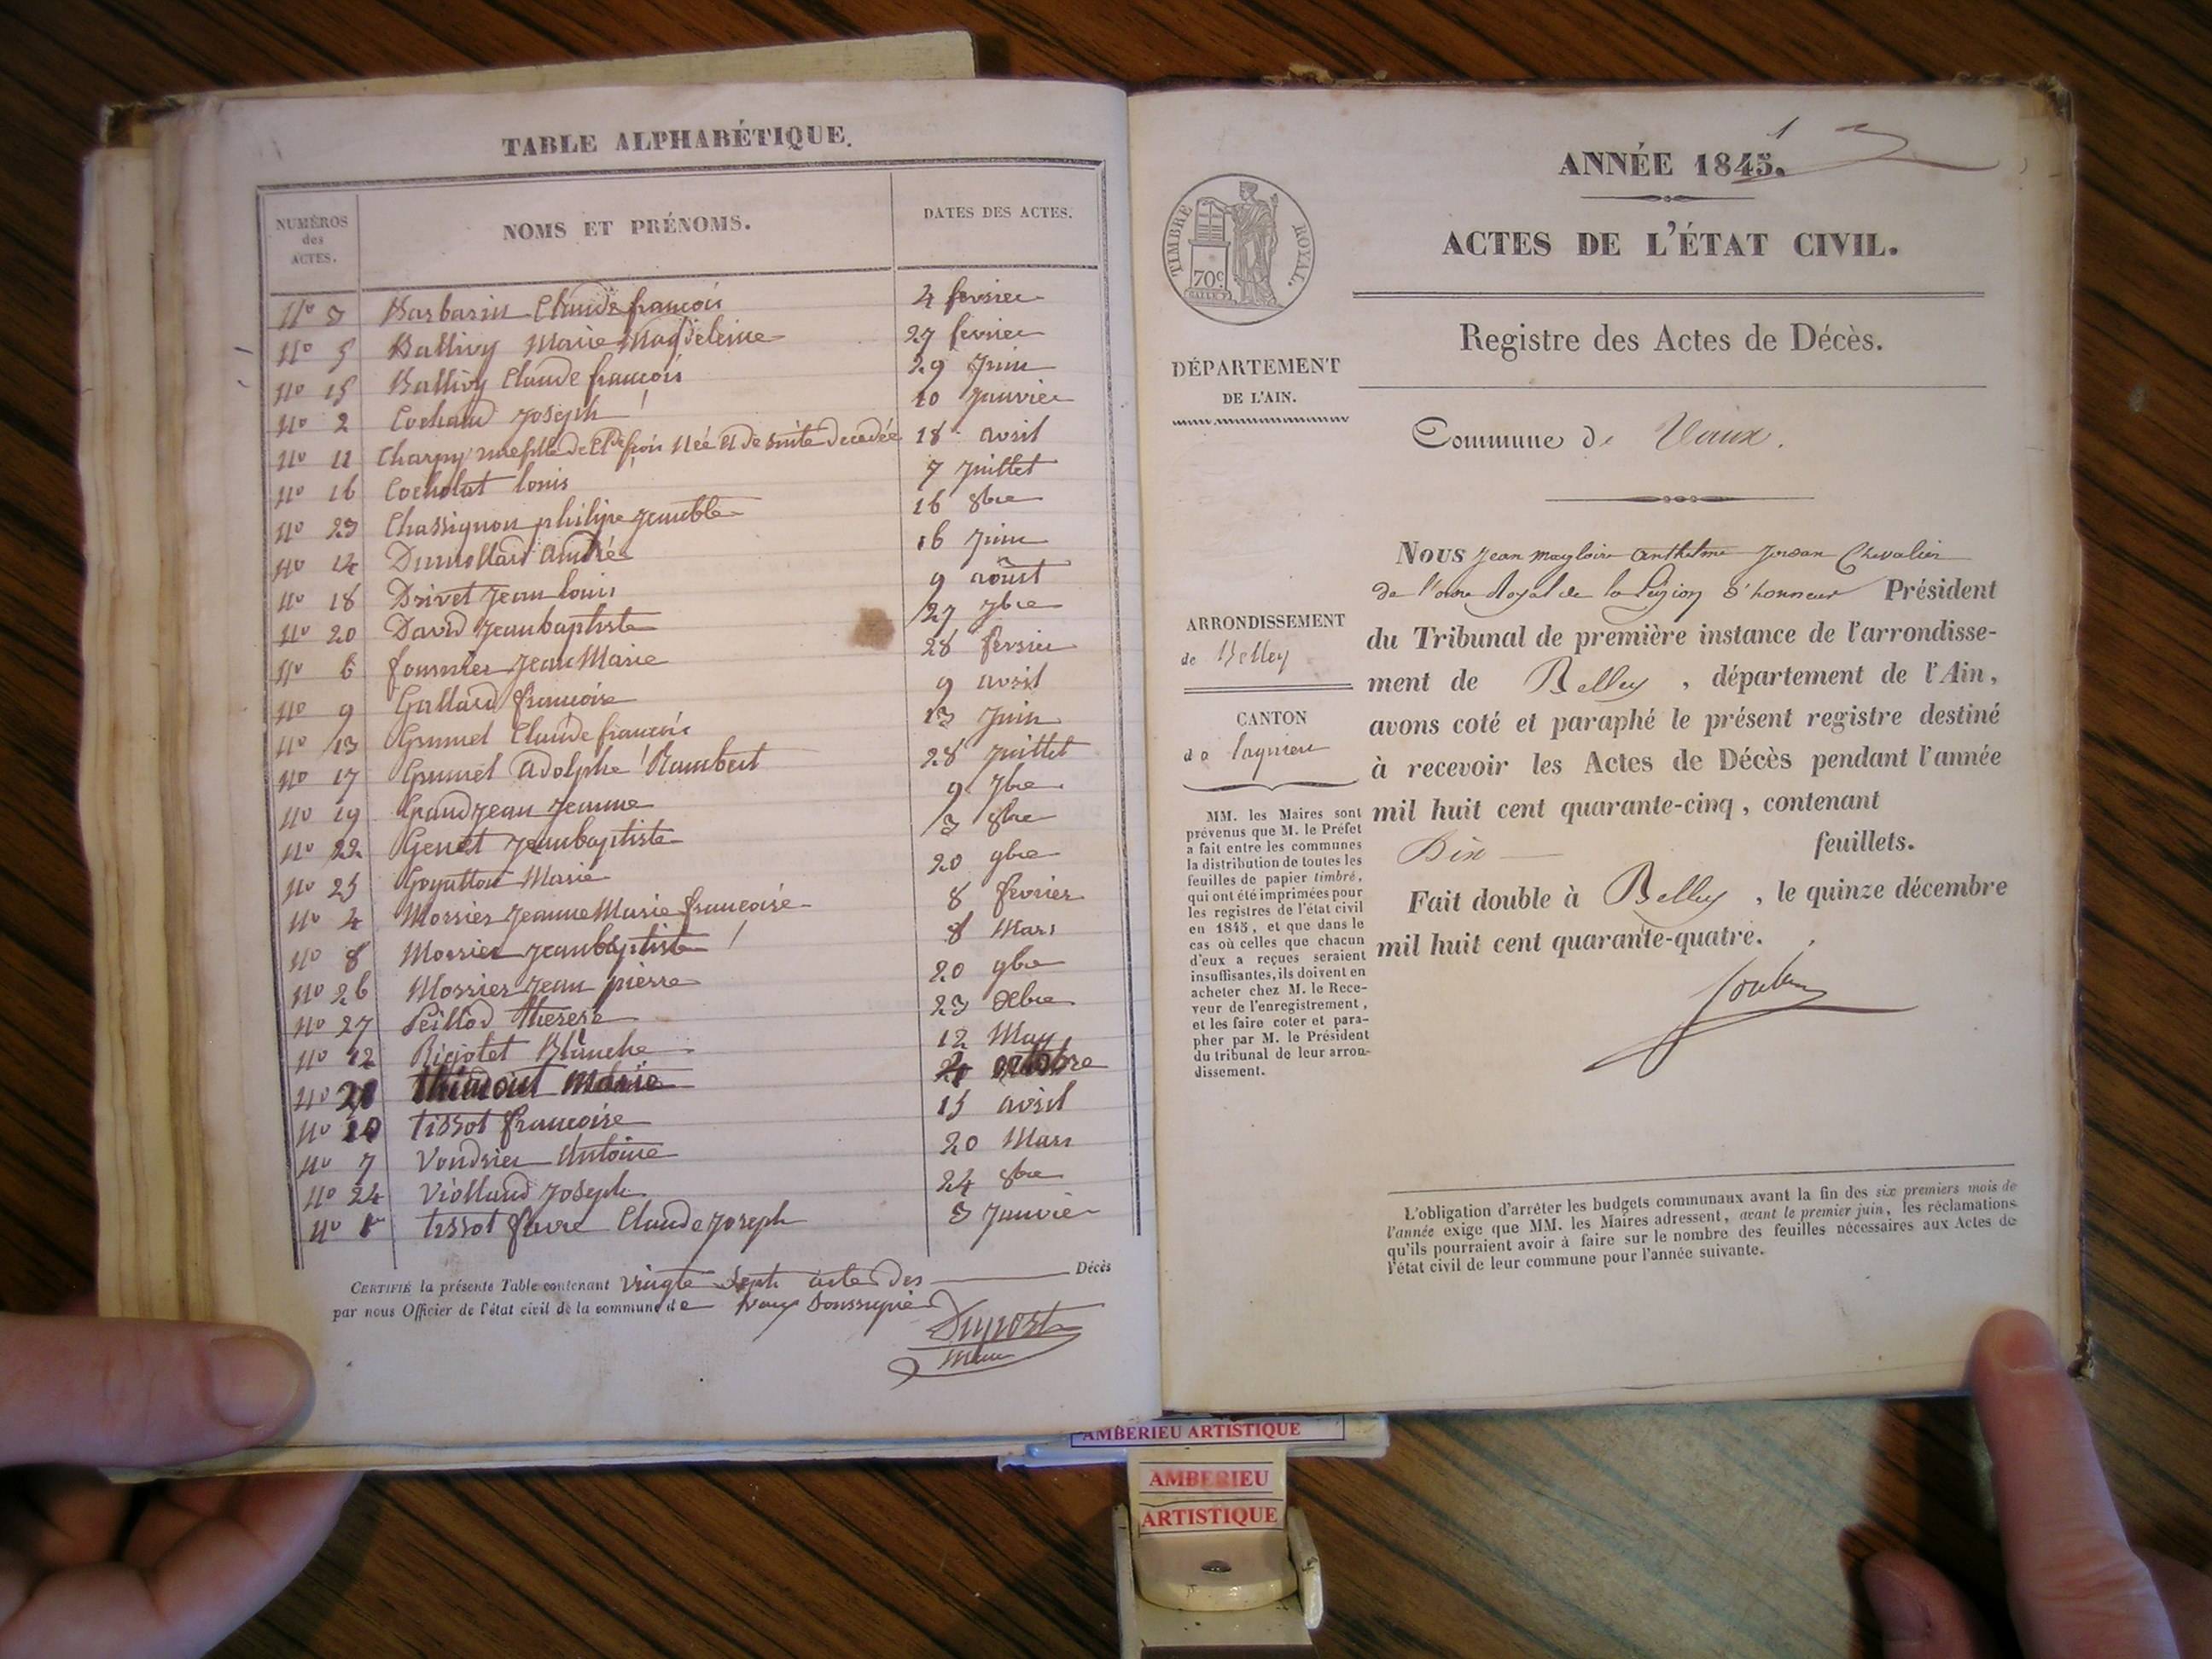 TABLE ALPHABÉTIQUE.
NUMÉROS des ACTES. NOMS ET PRÉNOMS. DATES DES ACTES.
No 3 Barbarin Claude françois 4 fevrier
No 5 Ballivy Marie Magdeleine 27 fevrier
No 15 Ballivy Claude françois 29 Juin
No 2 Cochand Joseph 10 Janvier
No 11 Charpy née et de suite decedée 18 avril
No 16 Cocholat louis 7 Juillet
No 23 Chassignon philipe 16 8bre
No 14 Dumollard André 16 Juin
No 18 Drivet Jean louis 9 aoust
No 20 David Jean baptiste 27 7bre
No 6 fournier Jean Marie 28 fevrier
No 9 Gallard françoise 9 avril
No 13 Grumel Claude françois 13 Juin
No 17 Grumel Adolphe Rambert 28 Juillet
No 19 Grandjean Jeanne 9 7bre
No 22 Genet Jean baptiste 3 8bre
No 25 Goyatton Marie 20 9bre
No 4 Morsier Jeanne Marie françoise 8 fevrier
No 8 Morsier Jean baptiste 8 Mars
No 26 Morsier Jean pierre 20 9bre
No 27 Peillod therese 23 Xbre
No 12 Rigolet Blanche 12 May
No 21 Marie octobre
No 10 tissot françoise 15 avril
No 7 Vendrier Antoine 20 Mars
No 24 Viollaud Joseph 24 8bre
No 1 tissot favre Claude Joseph 3 Janvier
CERTIFIÉ la présente Table contenant vingte Sept actes des Décès
par nous Officier de l'état civil de la commune de Vaux Soussigné
Dupost
Maire
1
ANNÉE 1845.
TIMBRE ROYAL.
70c
ACTES DE L'ÉTAT CIVIL.
Registre des Actes de Décès.
DÉPARTEMENT
DE L'AIN.
Commune de Vaux.
ARRONDISSEMENT
de Belley
CANTON
de lagnieu
MM. les Maires sont
prévenus que M. le Préfet
a fait entre les communes
la distribution de toutes les
feuilles de papier timbré,
qui ont été imprimées pour
les registres de l'état civil
en 1845, et que dans le
cas où celles que chacun
d'eux a reçues seraient
insuffisantes, ils doivent en
acheter chez M. le Rece-
veur de l'enregistrement,
et les faire coter et para-
pher par M. le Président
du tribunal de leur arron-
dissement.
Nous Jean Magloire Anthelme Jordan Chevalier
de l'ordre Royal de la Légion d'honneur Président
du Tribunal de première instance de l'arrondisse-
ment de Belley, département de l'Ain,
avons coté et paraphé le présent registre destiné
à recevoir les Actes de Décès pendant l'année
mil huit cent quarante-cinq, contenant
Dix feuillets.
Fait double à Belley, le quinze décembre
mil huit cent quarante-quatre.
L'obligation d'arrêter les budgets communaux avant la fin des six premiers mois de
l'année exige que MM. les Maires adressent, avant le premier juin, les réclamations
qu'ils pourraient avoir à faire sur le nombre des feuilles nécessaires aux Actes de
l'état civil de leur commune pour l'année suivante.
AMBERIEU ARTISTIQUE
AMBERIEU
ARTISTIQUE